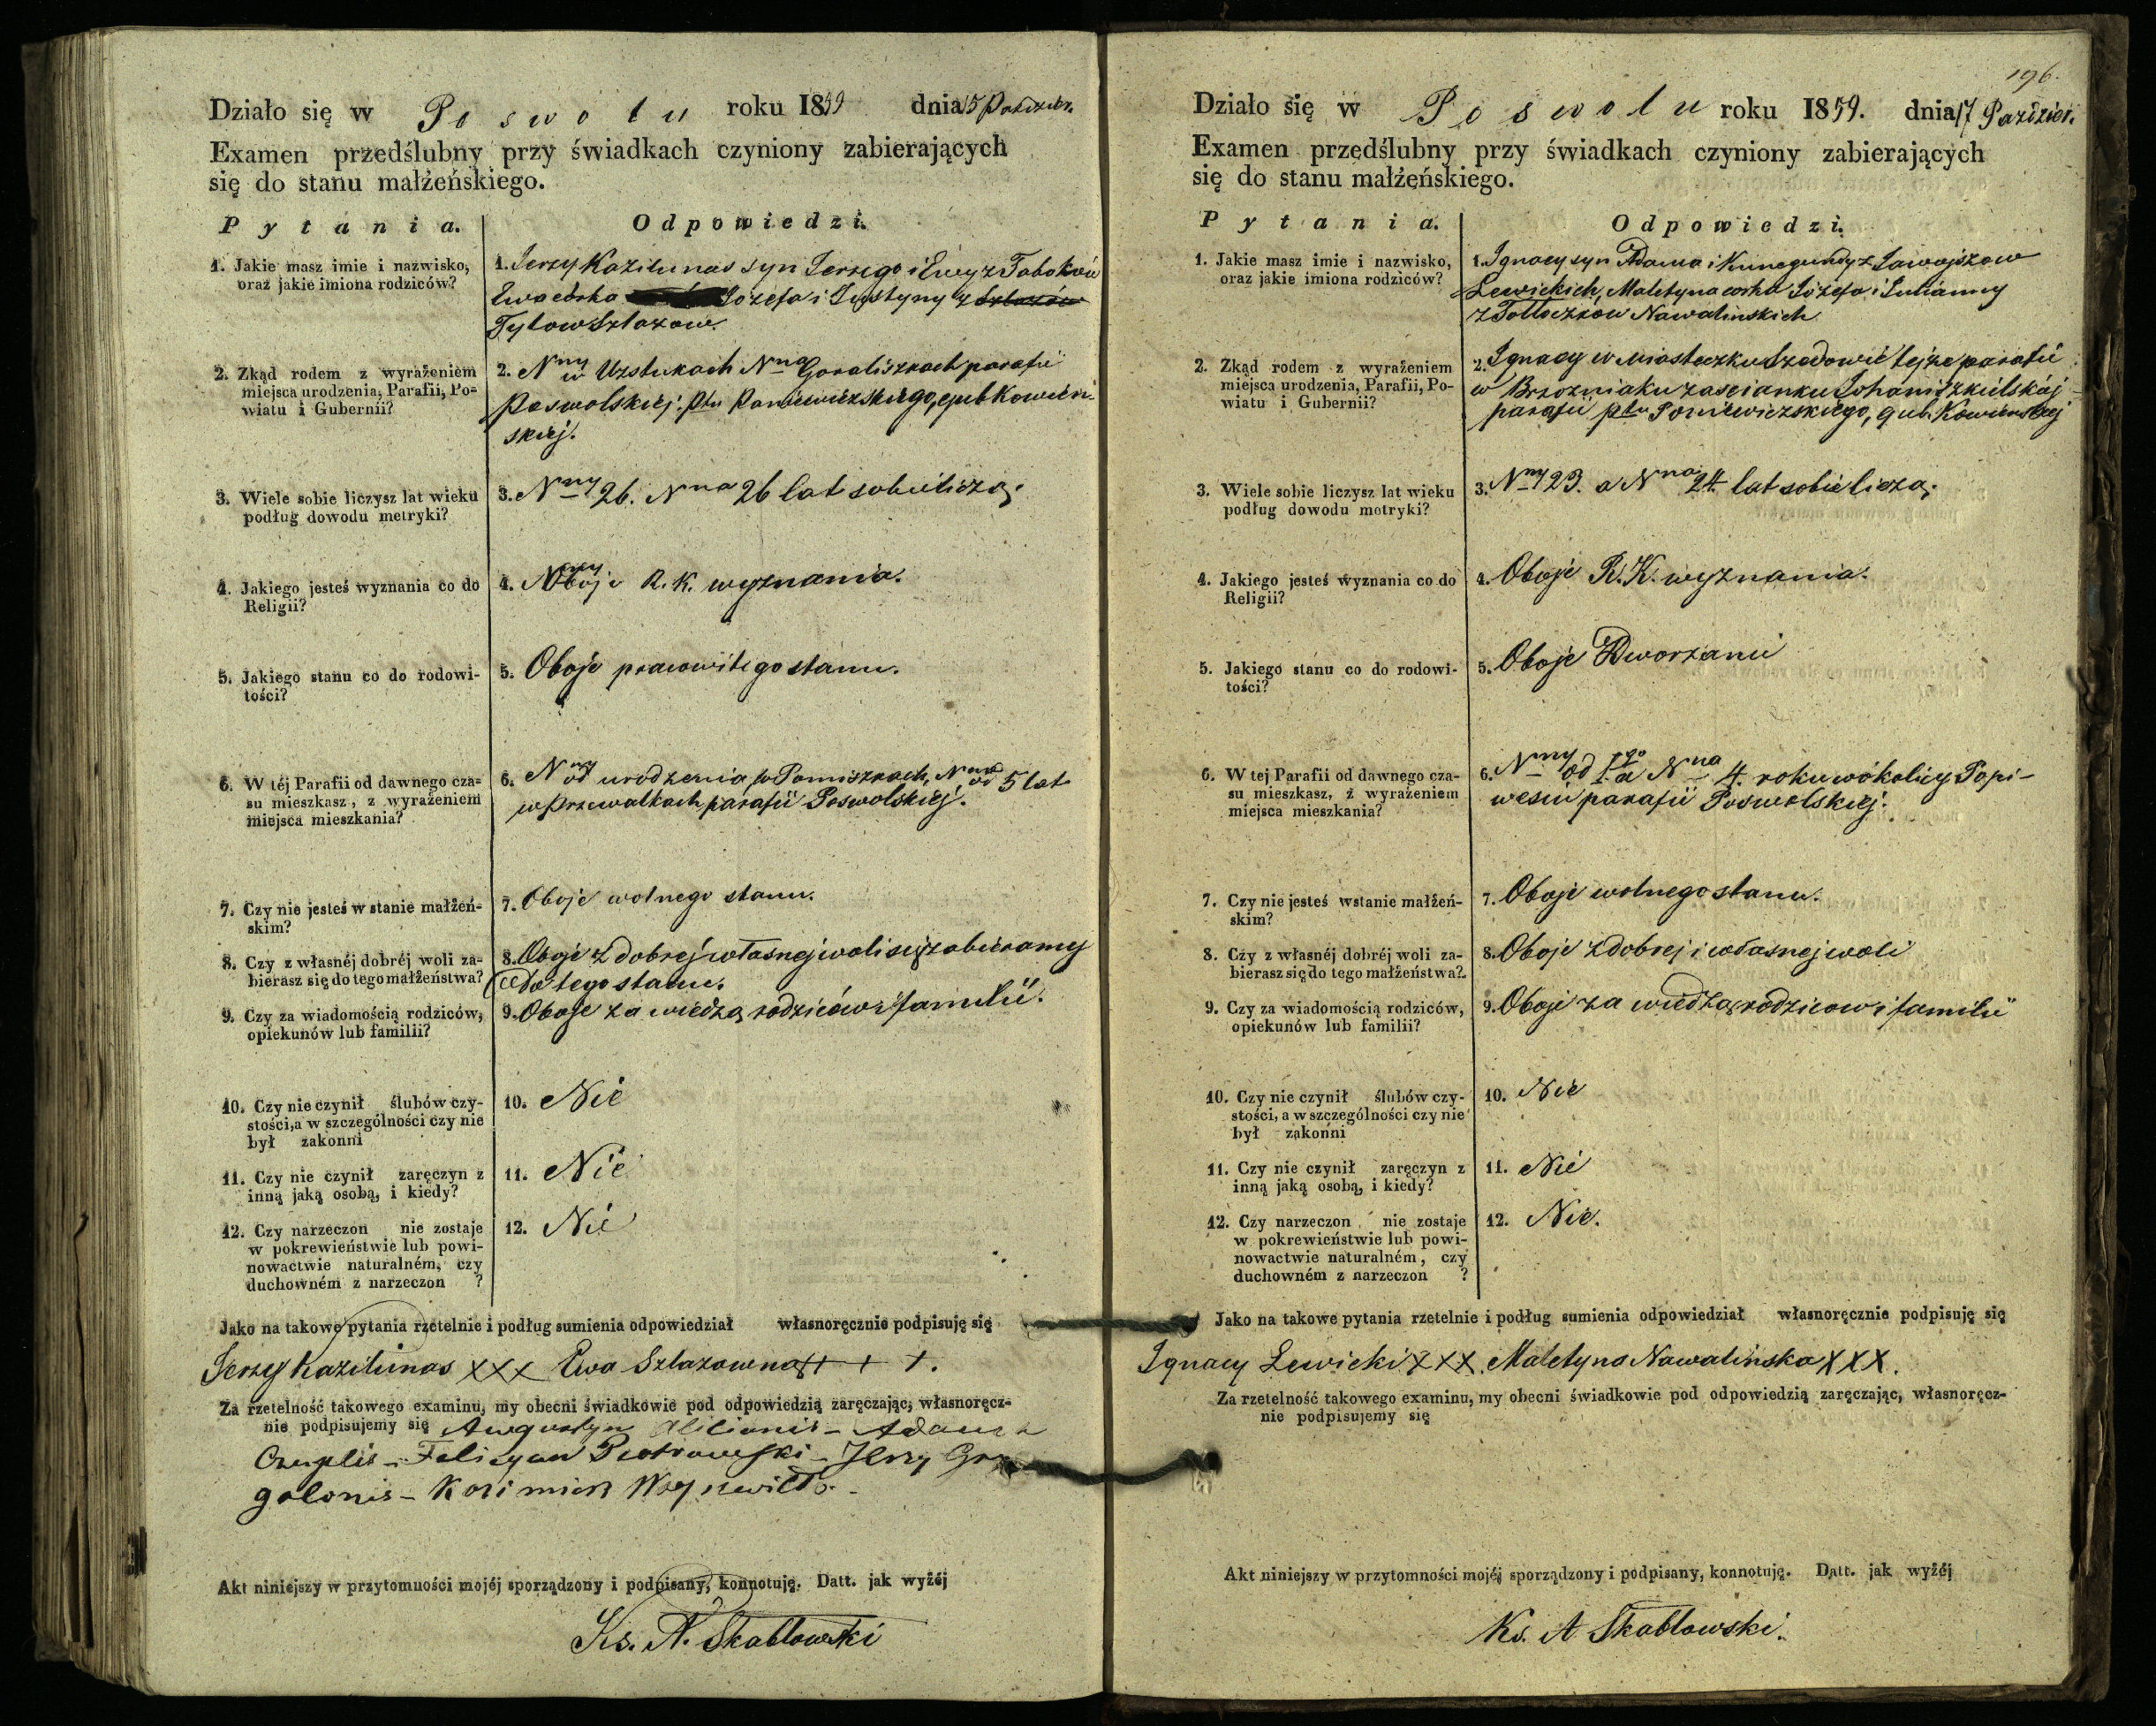 Działo się w Poswolu roku 1859 dnia 15 Paździer.
Examen przedślubny przy świadkach czyniony zabierających
się do stanu małżeńskiego.
Pytania. Odpowiedzi.
1. Jakie masz imie i nazwisko,
oraz jakie imiona rodziców?
1. Jerzy Kazilunas syn Jerzego i Ewy z
Ewa córka Józefa i Justyny z Szlazów
Tylow Szlazow.
2. Zkąd rodem z wyrażeniem
miejsca urodzenia, Parafii, Po-
wiatu i Gubernii?
2. Nny w Uzstukach Nna Goraliszkach parafii
Poswolskiej. Ptu Poniewiezskiego, gub Kowień-
skiej.
3. Wiele sobie liczysz lat wieku
podług dowodu metryki?
3. Nny 26. Nna 26 lat sobie liczą.
4. Jakiego jesteś wyznania co do
Religii?
4. Oboje R. K. wyznania.
5. Jakiego stanu co do rodowi-
tości?
5. Oboje pracowitego stanu.
6. W téj Parafii od dawnego cza-
su mieszkasz, z wyrażeniem
miejsca mieszkania?
6. Nny od urodzenia w Pamiszkach, Nna od 5 lat
w Przewalkach parafii Poswolskiej.
7. Czy nie jesteś w stanie małżeń-
skim?
7. Oboje wolnego stanu.
8. Czy z własnéj dobréj woli za-
bierasz się do tego małżeństwa?
8. Oboje z dobrej własnej woli się zabieramy
do tego stanu.
9. Czy za wiadomością rodziców,
opiekunów lub familii?
9. Oboje za wiedzą rodziców i familii.
10. Czy nie czynił ślubów czy-
stości, a w szczególności czy nie
był zakonni
10. Nie
11. Czy nie czynił zaręczyn z
inną jaką osobą, i kiedy?
11. Nie
12. Czy narzeczon nie zostaje
w pokrewieństwie lub powi-
nowactwie naturalném, czy
duchowném z narzeczon ?
12. Nie
Jako na takowe pytania rzetelnie i podług sumienia odpowiedział własnoręcznie podpisuję się
Jerzy Kazilunas XXX Ewa Szlazowna + + +.
Za rzetelność takowego examinu, my obecni świadkowie pod odpowiedzią zaręczając, własnoręcz-
nie podpisujemy się Augustyn - Adam
Czeplis - Felicyan Piotrowski - Jerzy Gry
galonis - Kazimierz
Akt niniejszy w przytomności mojéj sporządzony i podpisany, konnotuję. Datt. jak wyżéj
Ks. A. Skabłowski
196.
Działo się w Poswolu roku 1859. dnia 17 Paździer.
Examen przedślubny przy świadkach czyniony zabierających
się do stanu małżeńskiego.
Pytania. Odpowiedzi.
1. Jakie masz imie i nazwisko,
oraz jakie imiona rodziców?
1. Ignacy syn Adama i Kunegundy z
Lewickich, Maletyna corka Józefa i Julianny
z Tołłoczkow Nawalinskich
2. Zkąd rodem z wyrażeniem
miejsca urodzenia, Parafii, Po-
wiatu i Gubernii?
2. Ignacy w miasteczku Szadowie tejże parafii
w Brzozniaku zascianku Johaniszkielskiej
parafii ptu Poniewiezskiego, gub. Kowienskiej
3. Wiele sobie liczysz lat wieku
podług dowodu metryki?
3. Nny 23. a Nna 24 lat sobie liczą.
4. Jakiego jesteś wyznania co do
Religii?
4. Oboje R. K. wyznania.
5. Jakiego stanu co do rodowi-
tości?
5. Oboje Dworzanie
6. W tej Parafii od dawnego cza-
su mieszkasz, z wyrażeniem
miejsca mieszkania?
6. Nny od 1go a Nna 4 roku w okolicy Popi-
wesiu parafii Poswolskiej.
7. Czy nie jesteś wstanie małżeń-
skim?
7. Oboje wolnego stanu.
8. Czy z własnéj dobréj woli za-
bierasz się do tego małżeństwa?
8. Oboje z dobrej i własnej woli
9. Czy za wiadomością rodziców,
opiekunów lub familii?
9. Oboje za wiedzą rodzicow i familii
10. Czy nie czynił ślubów czy-
stości, a w szczególności czy nie
był zakonni
10. Nie
11. Czy nie czynił zaręczyn z
inną jaką osobą, i kiedy?
11. Nie
12. Czy narzeczon nie zostaje
w pokrewieństwie lub powi-
nowactwie naturalném, czy
duchowném z narzeczon ?
12. Nie.
Jako na takowe pytania rzetelnie i podług sumienia odpowiedział własnoręcznie podpisuję się
Ignacy Lewicki XXX. Maletyna Nawalińska XXX.
Za rzetelność takowego examinu, my obecni świadkowie pod odpowiedzią zaręczając, własnoręcz-
nie podpisujemy się
Akt niniejszy w przytomności mojéj sporządzony i podpisany, konnotuję. Datt. jak wyżéj
Ks. A Skabłowski.